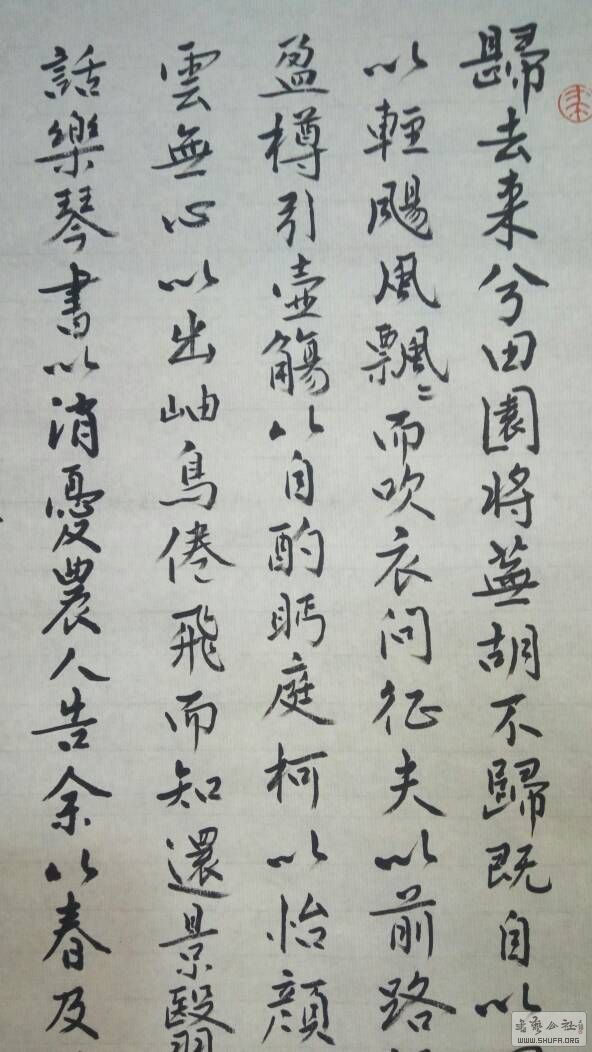 歸去来兮田園将蕪胡不歸既自以
以輕颺風飄〻而吹衣问征夫以前路
盈樽引壺觴以自酌眄庭柯以怡顔
雲無心以出岫鳥倦飛而知還景翳翳
話樂琴書以消憂農人告余以春及
WWW.SHUFA.ORG